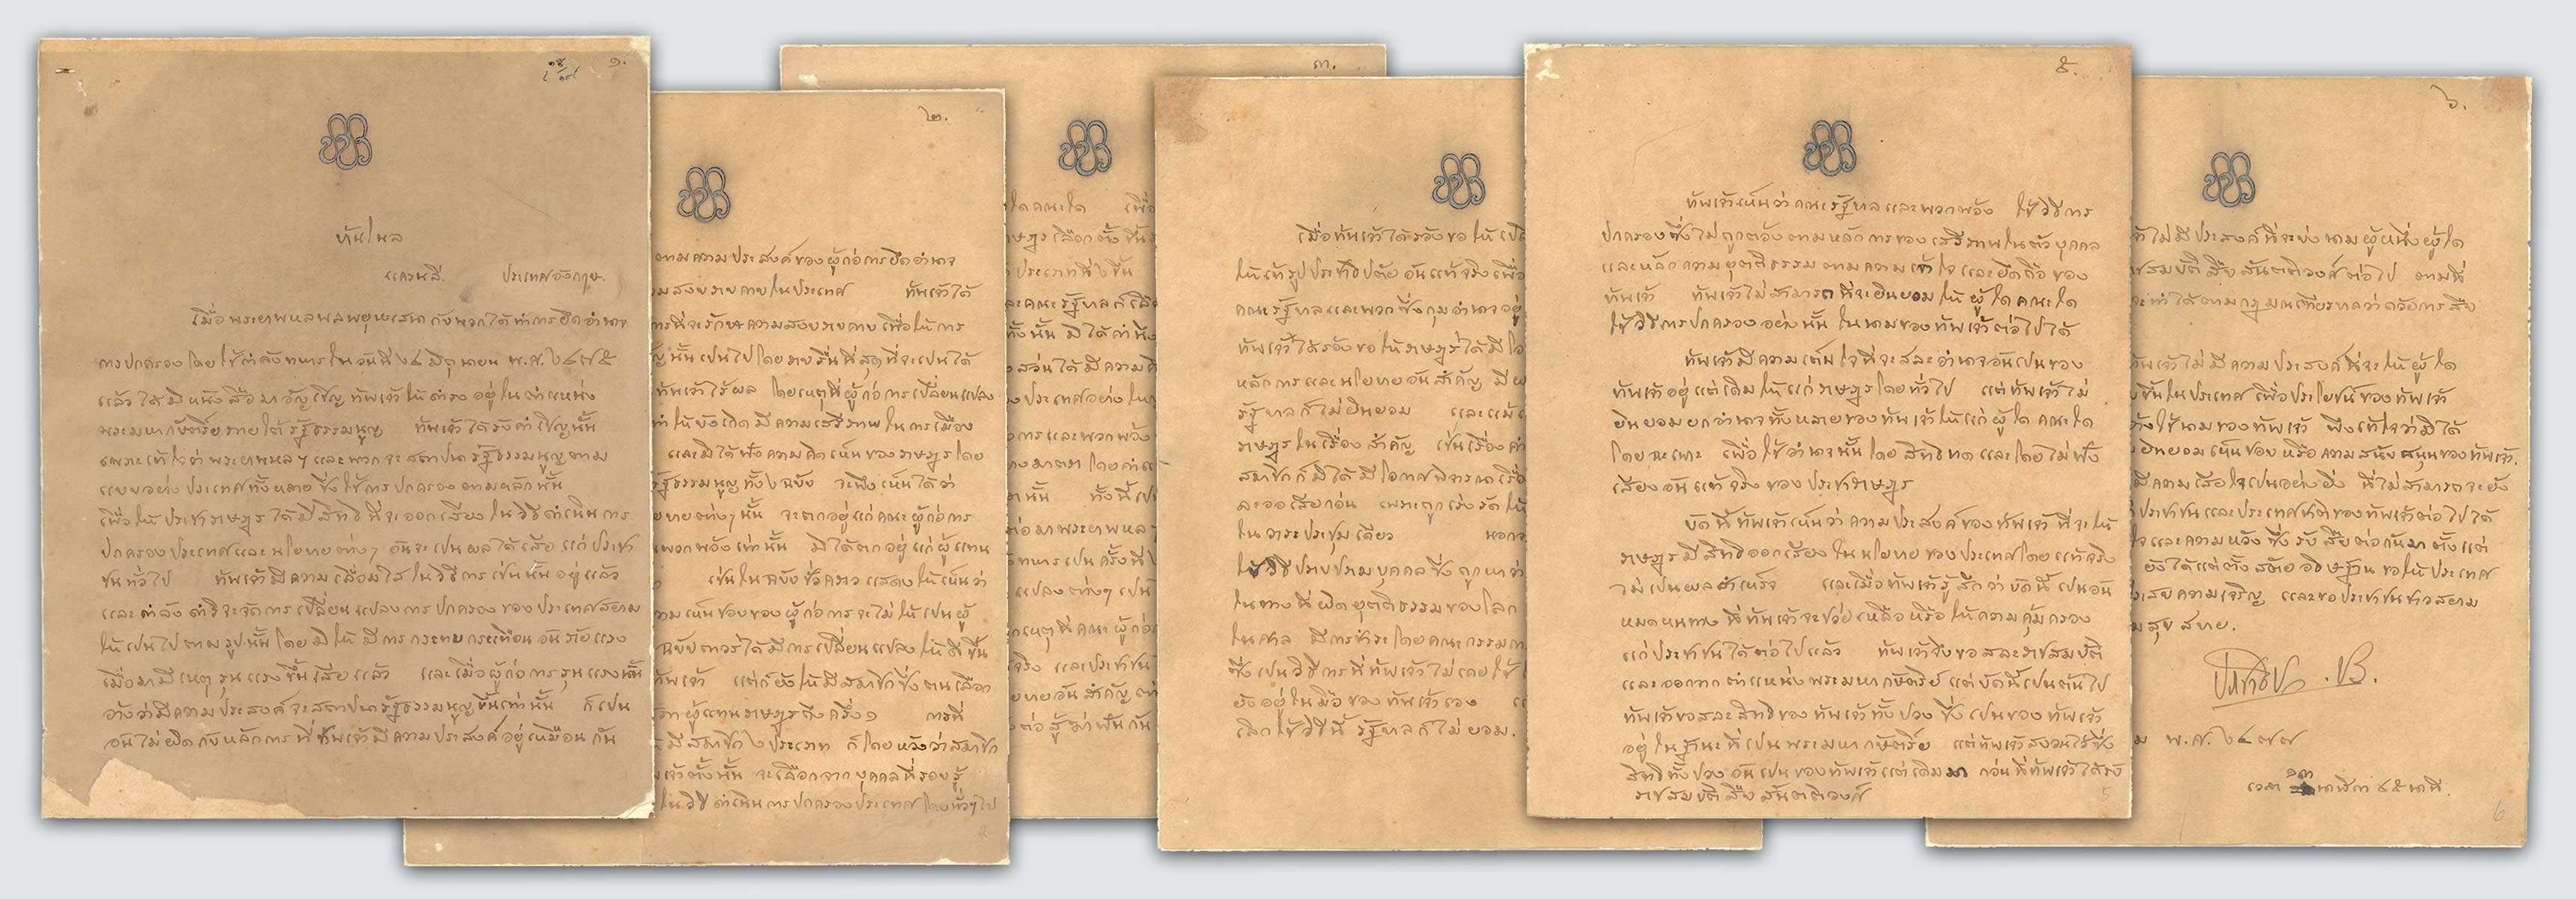 ๑.
บ้านโนล
แครนลี. ประเทศอังกฤษ.
เมื่อพระยาพหลพลพยุหเสนา กับพวกได้ทำการยึดอำนาจ
การปกครองโดยใช้กำลังทหารในวันที่ ๒๔ มิถุนายน พ.ศ. ๒๔๗๕
แล้ว ได้มีหนังสือมาอัญเชิญข้าพเจ้าให้ดำรงอยู่ในตำแหน่ง
พระมหากษัตริย์ภายใต้รัฐธรรมนูญ ข้าพเจ้าได้รับคำเชิญนั้น
เพราะเข้าใจว่าพระยาพหลฯ และพวกจะสถาปนารัฐธรรมนูญตาม
แบบอย่างประเทศทั้งหลายซึ่งใช้การปกครองตามหลักนั้น
เพื่อให้ประชาราษฎรได้มีสิทธิที่จะออกเสียงในวิธีดำเนินการ
ปกครองประเทศและนโยบายต่างๆ อันจะเป็นผลได้เสียแก่ประชา
ชนทั่วไป ข้าพเจ้ามีความเลื่อมใสในวิธีการเช่นนั้นอยู่แล้ว
และกำลังดำริจะจัดการเปลี่ยนแปลงการปกครองของประเทศสยาม
ให้เป็นไปตามรูปนั้นโดยมิให้มีการกระทบกระเทือนอันร้ายแรง
เมื่อมามีเหตุรุนแรงขึ้นเสียแล้ว และเมื่อผู้ก่อการรุนแรงนั้น
อ้างว่ามีความประสงค์จะสถาปนารัฐธรรมนูญขึ้นเท่านั้น ก็เป็น
อันไม่ผิดกับหลักการที่ข้าพเจ้ามีความประสงค์อยู่เหมือนกัน
๒.
ตามความประสงค์ของผู้ก่อการยึดอำนาจ
มสงบราบคาบในประเทศ ข้าพเจ้าได้
การที่จะรักษาความสงบราบคาบเพื่อให้การ
ญนั้นเป็นไปโดยราบรื่นที่สุดที่จะเป็นได้
ข้าพเจ้าไร้ผล โดยเหตุที่ผู้ก่อการเปลี่ยนแปลง
ทำให้บังเกิดมีความเสรีภาพในการเมือง
และมิได้ฟังความคิดเห็นของราษฎรโดย
รัฐธรรมนูญทั้ง ๒ ฉบับ จะพึงเห็นได้ว่า
ยบายต่างๆนั้น จะตกอยู่แก่คณะผู้ก่อการ
พวกพ้องเท่านั้น มิได้ตกอยู่แก่ผู้แทน
เช่นในฉบับชั่วคราว แสดงให้เห็นว่า
วามเห็นชอบของผู้ก่อการจะไม่ให้เป็นผู้
ฉบับถาวรได้มีการเปลี่ยนแปลงให้ดีขึ้น
ข้าพเจ้า แต่ก็ยังให้มีสมาชิกซึ่งตนเลือก
ภาผู้แทนราษฎรถึงครึ่ง ๑ การที่
มีสมาชิก ๒ ประเภท ก็โดยหวังว่าสมาชิก
เจ้าตั้งนั้น จะเลือกจากบุคคลที่รอบรู้
ในวิธีดำเนินการปกครองประเทศโดยทั่วๆไป
๓.
ใดคณะใด เพื่อ
าษฎรเลือกตั้งขึ้น
ประเภทที่ ๒ ขึ้น
ละคณะรัฐบาลก็เลือ
ทั้งนั้น มิได้คำนึง
เมื่อข้าพเจ้าได้ร้องขอให้เปลี่
ให้เข้ารูปประชาธิปตัยอันแท้จริงเพื่อ
คณะรัฐบาลและพวกซึ่งกุมอำนาจอยู่
ข้าพเจ้าได้ร้องขอให้ราษฎรได้มีโอ
หลักการและนโยบายอันสำคัญ มีผ
รัฐบาลก็ไม่ยินยอม และแม้
ราษฎรในเรื่องสำคัญ เช่นเรื่องคำ
สมาชิกก็มิได้มีโอกาศพิจารณาเรื่อ
ละออเสียก่อน เพราะถูกเร่งรัดให้
ในวาระประชุมเดียว นอกจ
ใช้วิธีปราบปรามบุคคลซึ่งถูกหาว่า
ในทางที่ผิดยุตติธรรมของโลก
ในศาล มีการชำระโดยคณะกรรมก
ซึ่งเป็นวิธีการที่ข้าพเจ้าไม่เคยใช้
ยังอยู่ในมือของข้าพเจ้าเอง แ
เลิกใช้วิธีนี้ รัฐบาลก็ไม่ยอม.
๕.
ข้าพเจ้าเห็นว่าคณะรัฐบาลและพวกพ้อง ใช้วิธีการ
ปกครองซึ่งไม่ถูกต้องตามหลักการของเสรีภาพในตัวบุคคล
และหลักความยุตติธรรม ตามความเข้าใจและยึดถือของ
ข้าพเจ้า ข้าพเจ้าไม่สามารถที่จะยินยอมให้ผู้ใด คณะใด
ใช้วิธีการปกครองอย่างนั้น ในนามของข้าพเจ้าต่อไปได้
ข้าพเจ้ามีความเต็มใจที่จะสละอำนาจอันเป็นของ
ข้าพเจ้าอยู่แต่เดิมให้แก่ราษฎรโดยทั่วไป แต่ข้าพเจ้าไม่
ยินยอมยกอำนาจทั้งหลายของข้าพเจ้าให้แก่ผู้ใด คณะใด
โดยฉะเพาะ เพื่อใช้อำนาจนั้นโดยสิทธิขาด และโดยไม่ฟัง
เสียงอันแท้จริงของประชาราษฎร
บัดนี้ข้าพเจ้าเห็นว่าความประสงค์ของข้าพเจ้าที่จะให้
ราษฎรมีสิทธิออกเสียงในนโยบายของประเทศโดยแท้จริง
ไม่เป็นผลสำเหร็จ และเมื่อข้าพเจ้ารู้สึกว่าบัดนี้เป็นอัน
หมดหนทางที่ข้าพเจ้าจะช่วยเหลือหรือให้ความคุ้มครอง
แก่ประชาชนได้ต่อไปแล้ว ข้าพเจ้าจึงขอสละราชสมบัติ
และออกจากตำแหน่งพระมหากษัตริย์ แต่บัดนี้เป็นต้นไป
ข้าพเจ้าขอสละสิทธิของข้าพเจ้าทั้งปวง ซึ่งเป็นของข้าพเจ้า
อยู่ในฐานะที่เป็นพระมหากษัตริย์ แต่ข้าพเจ้าสงวนไว้ซึ่ง
สิทธิทั้งปวงอันเป็นของข้าพเจ้าแต่เดิมมา ก่อนที่ข้าพเจ้าได้รับ
ราชสมบัติสืบสันตติวงศ์
๖.
จ้าไม่มีประสงค์ที่จะบ่งนามผู้หนึ่งผู้ใด
าชสมบัติสืบสันตติวงศ์ต่อไป ตามที่
จะทำได้ตามกฎมณเฑียรบาลว่าด้วยการสืบ
ข้าพเจ้าไม่มีความประสงค์ที่จะให้ผู้ใด
บขึ้นในประเทศ เพื่อประโยชน์ของข้าพเจ้า
อ้างใช้นามของข้าพเจ้า พึงเข้าใจว่ามิได้
ยินยอมเห็นชอบหรือความสนับสนุนของข้าพเจ้า.
มีความเสียใจเป็นอย่างยิ่ง ที่ไม่สามารถจะยัง
ประชาชนและประเทศชาติของข้าพเจ้าต่อไปได้
ใจและความหวังซึ่งรับสืบต่อกันมาตั้งแต่
ยังได้แต่ตั้งสัตย์อธิษฐาน ขอให้ประเทศ
ะสบความเจริญ และขอประชาชนชาวสยาม
มสุขสบาย.
ประชาธิปก. ปร.
ม พ.ศ. ๒๔๗๗
เวลา ๑๓ นาฬิกา ๔๕ นาที.